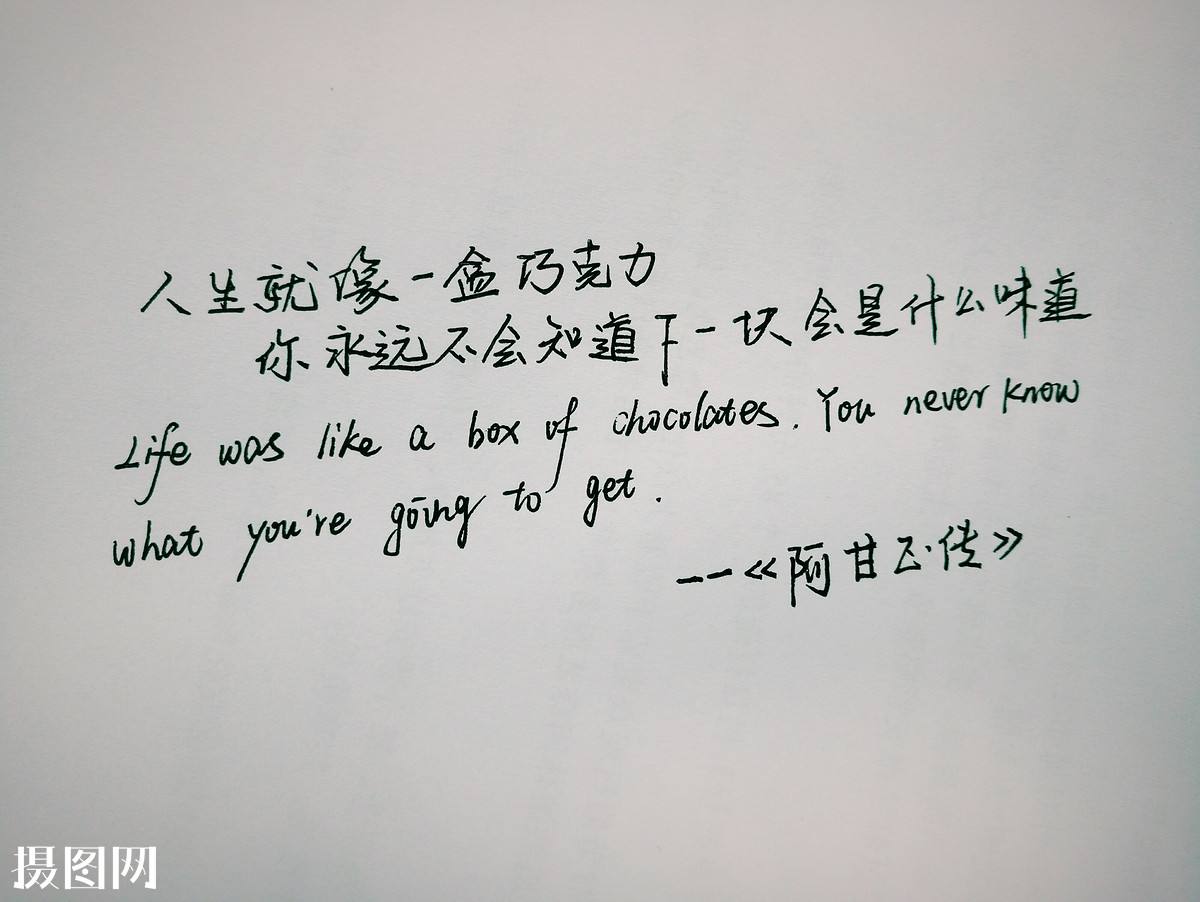 人生就像一盒巧克力
你永远不会知道下一块会是什么味道
Life was like a box of chocolates. You never know
what you're going to get.
--《阿甘正传》
摄图网